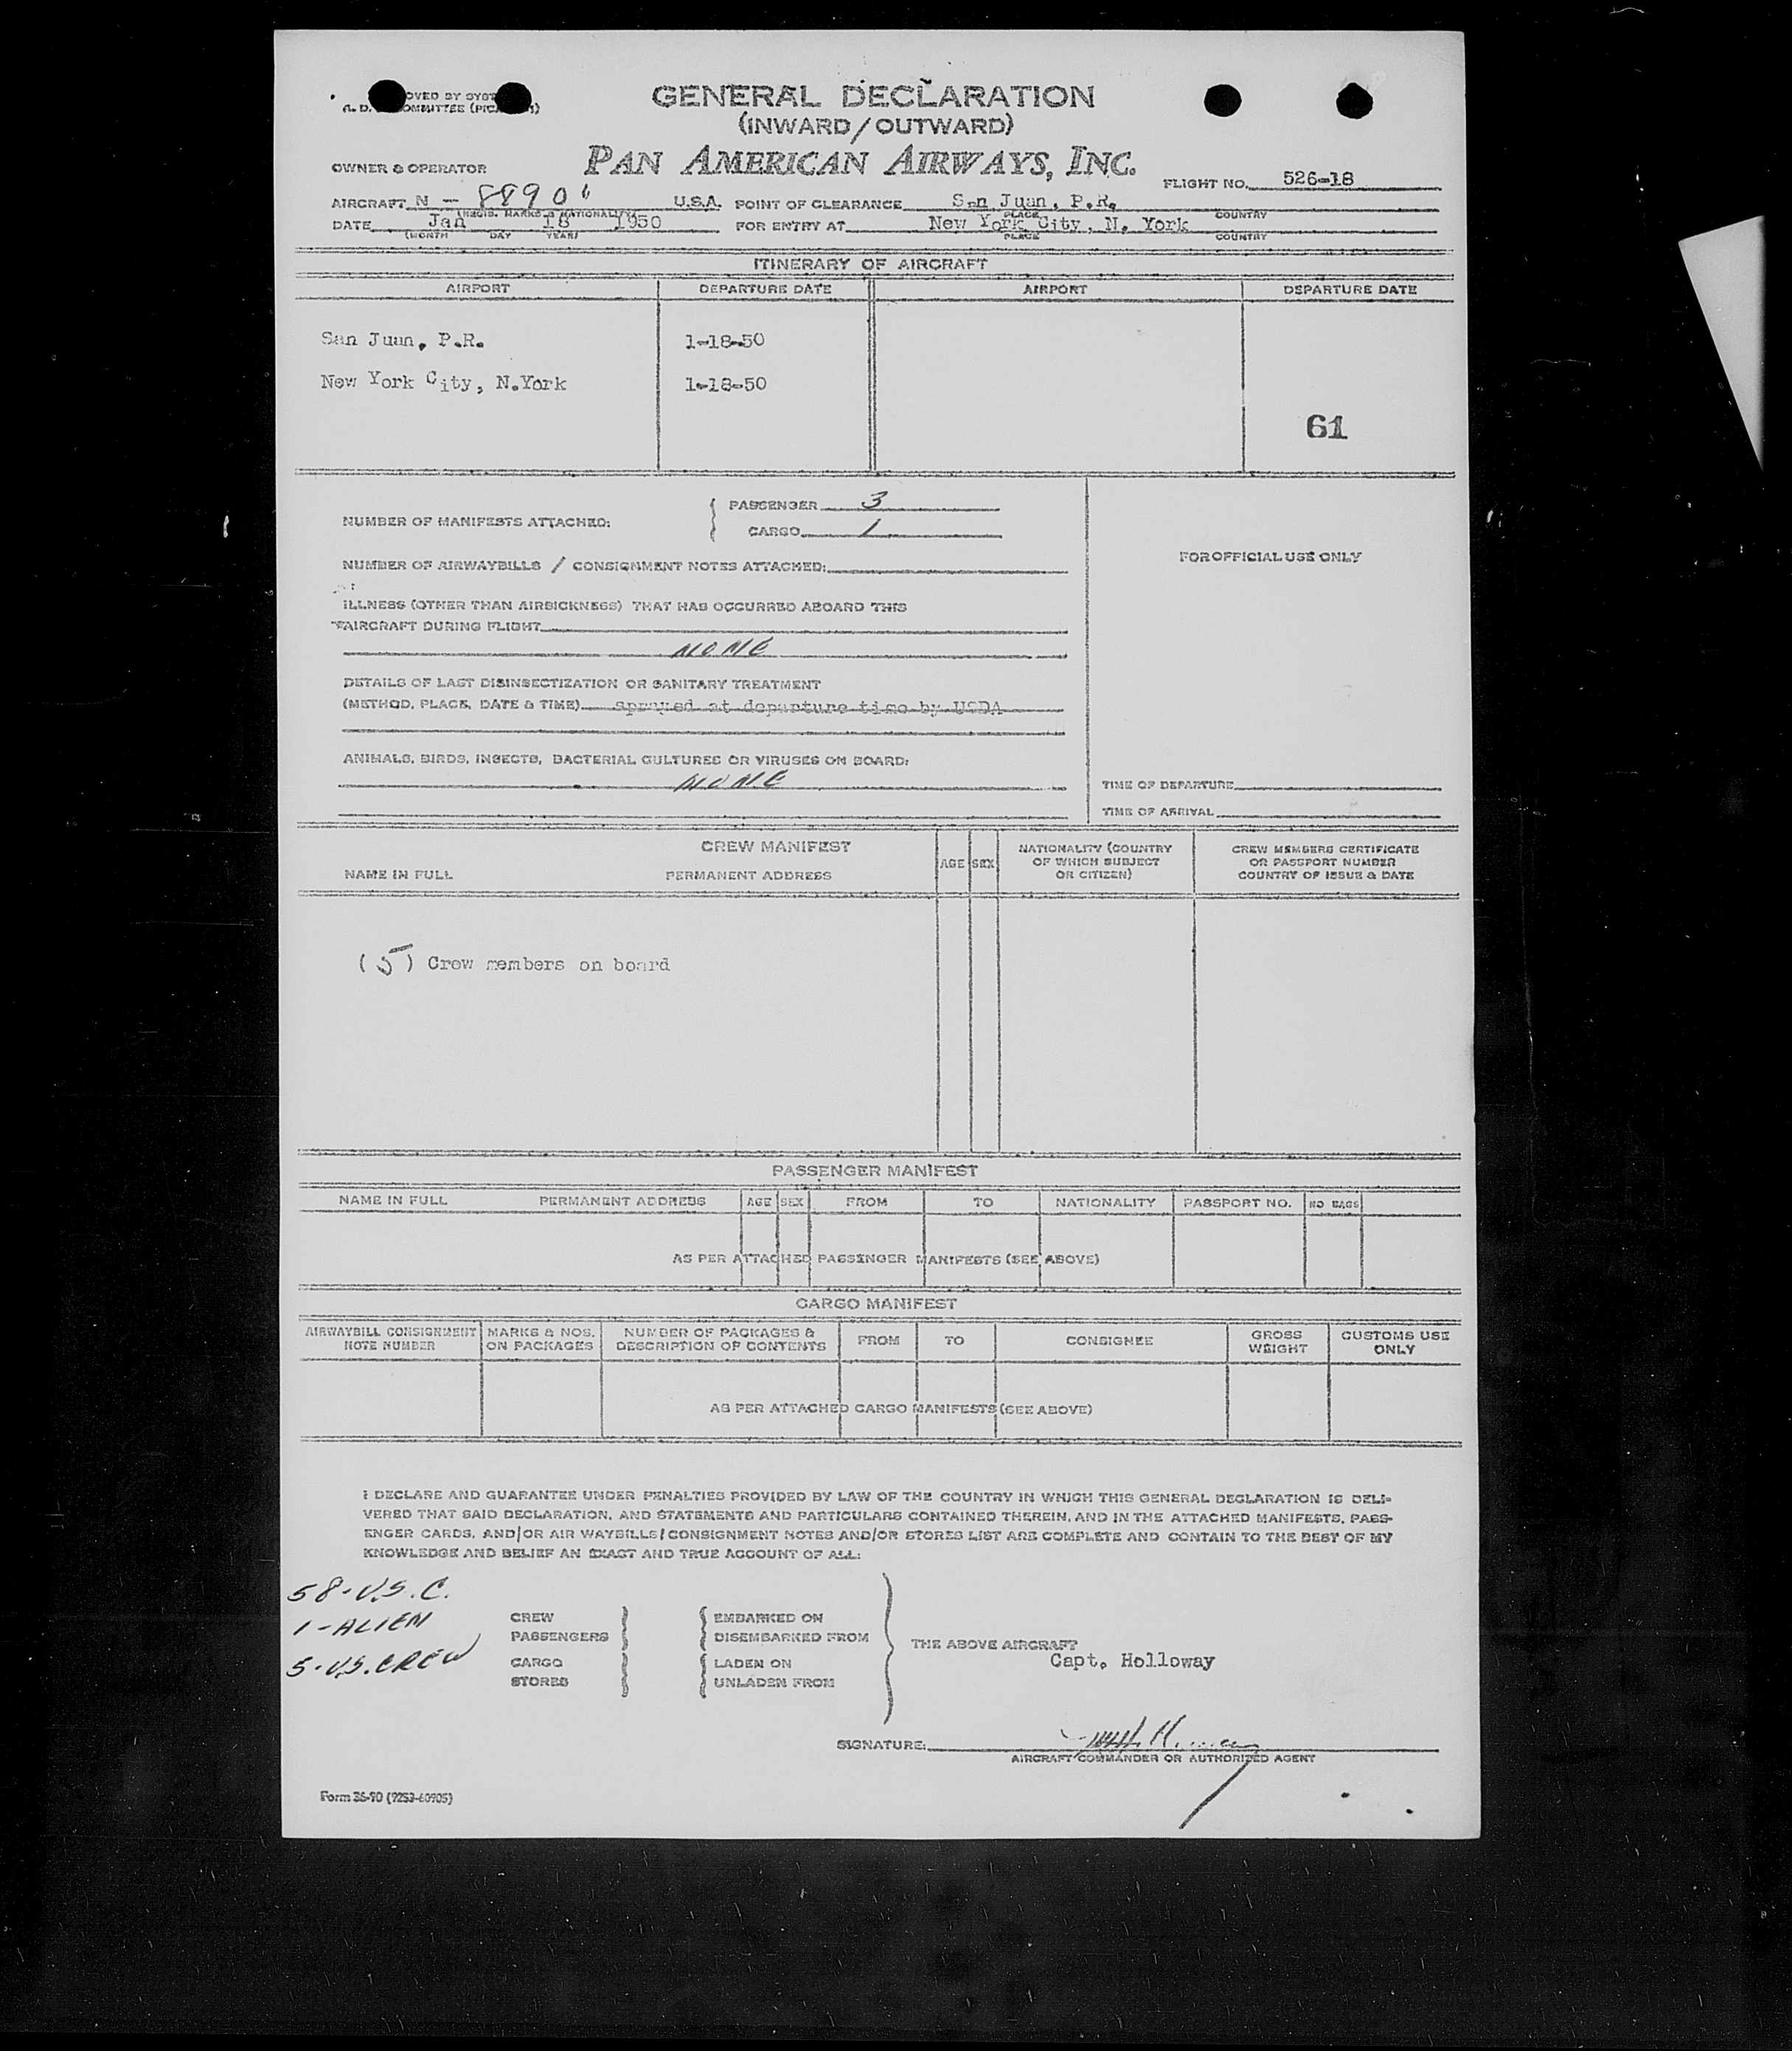 GENERAL DECLARATION
(INWARD/OUTWARD)
PAN AMERICAN AIRWAYS, INC.
OWNER & OPERATOR
FLIGHT NO. 526-18
AIRCRAFT N - 8890 U.S.A. POINT OF CLEARANCE San Juan, P.R.
(REGIS. MARKS & NATIONALITY) PLACE COUNTRY
DATE Jan 18 1950 FOR ENTRY AT New York City, N. York
(MONTH DAY YEAR) PLACE COUNTRY
ITINERARY OF AIRCRAFT
AIRPORT DEPARTURE DATE AIRPORT DEPARTURE DATE
San Juan, P.R. 1-18-50
New York City, N.York 1-18-50
61
NUMBER OF MANIFESTS ATTACHED: PASSENGER 3
CARGO 1
FOR OFFICIAL USE ONLY
NUMBER OF AIRWAYBILLS / CONSIGNMENT NOTES ATTACHED:
ILLNESS (OTHER THAN AIRSICKNESS) THAT HAS OCCURRED ABOARD THIS
AIRCRAFT DURING FLIGHT
NONE
DETAILS OF LAST DISINSECTIZATION OR SANITARY TREATMENT
(METHOD, PLACE, DATE & TIME) sprayed at departure time by USDA
ANIMALS, BIRDS, INSECTS, BACTERIAL CULTURES OR VIRUSES ON BOARD:
NONE
TIME OF DEPARTURE
TIME OF ARRIVAL
CREW MANIFEST
NAME IN FULL PERMANENT ADDRESS AGE SEX NATIONALITY (COUNTRY OF WHICH SUBJECT OR CITIZEN) CREW MEMBERS CERTIFICATE OR PASSPORT NUMBER COUNTRY OF ISSUE & DATE
(5) Crew members on board
PASSENGER MANIFEST
NAME IN FULL PERMANENT ADDRESS AGE SEX FROM TO NATIONALITY PASSPORT NO. NO BAGS
AS PER ATTACHED PASSENGER MANIFESTS (SEE ABOVE)
CARGO MANIFEST
AIRWAYBILL CONSIGNMENT NOTE NUMBER MARKS & NOS. ON PACKAGES NUMBER OF PACKAGES & DESCRIPTION OF CONTENTS FROM TO CONSIGNEE GROSS WEIGHT CUSTOMS USE ONLY
AS PER ATTACHED CARGO MANIFESTS (SEE ABOVE)
I DECLARE AND GUARANTEE UNDER PENALTIES PROVIDED BY LAW OF THE COUNTRY IN WHICH THIS GENERAL DECLARATION IS DELI-
VERED THAT SAID DECLARATION, AND STATEMENTS AND PARTICULARS CONTAINED THEREIN, AND IN THE ATTACHED MANIFESTS, PASS-
ENGER CARDS, AND/OR AIR WAYBILLS/CONSIGNMENT NOTES AND/OR STORES LIST ARE COMPLETE AND CONTAIN TO THE BEST OF MY
KNOWLEDGE AND BELIEF AN EXACT AND TRUE ACCOUNT OF ALL:
58-U.S.C.
1-ALIEN
5-U.S. CREW
CREW EMBARKED ON
PASSENGERS DISEMBARKED FROM
THE ABOVE AIRCRAFT
CARGO LADEN ON
Capt. Holloway
STORES UNLADEN FROM
SIGNATURE:
AIRCRAFT COMMANDER OR AUTHORIZED AGENT
Form 36-90 (9253-60905)